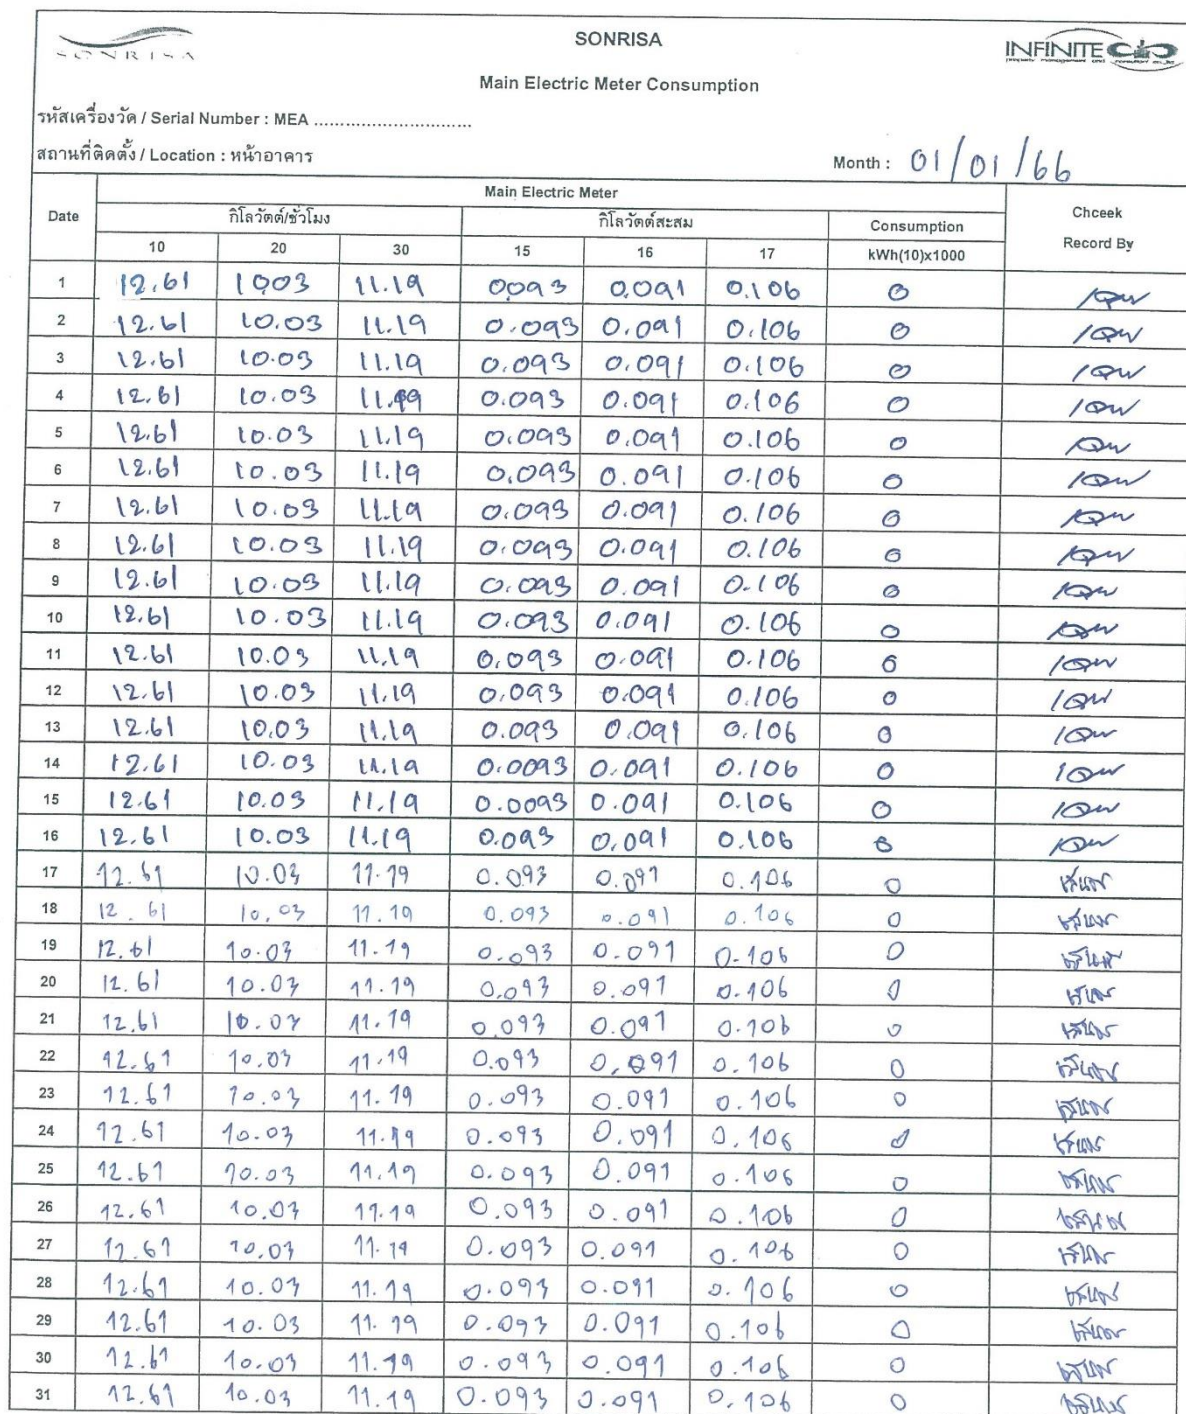 SONRISA
SONRISA
INFINITE
Main Electric Meter Consumption
รหัสเครื่องวัด / Serial Number : MEA ..............................
สถานที่ติดตั้ง / Location : หน้าอาคาร
Month : 01/01/66
Date Main Electric Meter Cheeek Record By
กิโลวัตต์/ชั่วโมง กิโลวัตต์สะสม Consumption
10 20 30 15 16 17 kWh(10)x1000
1 12.61 1003 11.19 0093 0.091 0.106 0
2 12.61 10.03 11.19 0.093 0.091 0.106 0
3 12.61 10.03 11.19 0.093 0.091 0.106 0
4 12.61 10.03 11.19 0.093 0.091 0.106 0
5 12.61 10.03 11.19 0.093 0.091 0.106 0
6 12.61 10.03 11.19 0.093 0.091 0.106 0
7 12.61 10.03 11.19 0.093 0.091 0.106 0
8 12.61 10.03 11.19 0.093 0.091 0.106 0
9 12.61 10.03 11.19 0.093 0.091 0.106 0
10 12.61 10.03 11.19 0.093 0.091 0.106 0
11 12.61 10.03 11.19 0.093 0.091 0.106 0
12 12.61 10.03 11.19 0.093 0.091 0.106 0
13 12.61 10.03 11.19 0.093 0.091 0.106 0
14 12.61 10.03 11.19 0.0093 0.091 0.106 0
15 12.61 10.03 11.19 0.0093 0.091 0.106 0
16 12.61 10.03 11.19 0.093 0.091 0.106 0
17 12.61 10.03 11.19 0.093 0.091 0.106 0
18 12.61 10.03 11.19 0.093 0.091 0.106 0
19 12.61 10.03 11.19 0.093 0.091 0-106 0
20 12.61 10.03 11.19 0.093 0.091 0.106 0
21 12.61 10.03 11.19 0.093 0.091 0.106 0
22 12.61 10.03 11.19 0.093 0.091 0.106 0
23 12.61 10.03 11.19 0.093 0.091 0.106 0
24 12.61 10.03 11.19 0.093 0.091 0.106 0
25 12.61 10.03 11.19 0.093 0.091 0.106 0
26 12.61 10.03 11.19 0.093 0.091 0.106 0
27 12.61 10.03 11.19 0.093 0.091 0.106 0
28 12.61 10.03 11.19 0.093 0.091 0.106 0
29 12.61 10.03 11.19 0.093 0.091 0.106 0
30 12.61 10.03 11.19 0.093 0.091 0.106 0
31 12.61 10.03 11.19 0.093 0.091 0.106 0